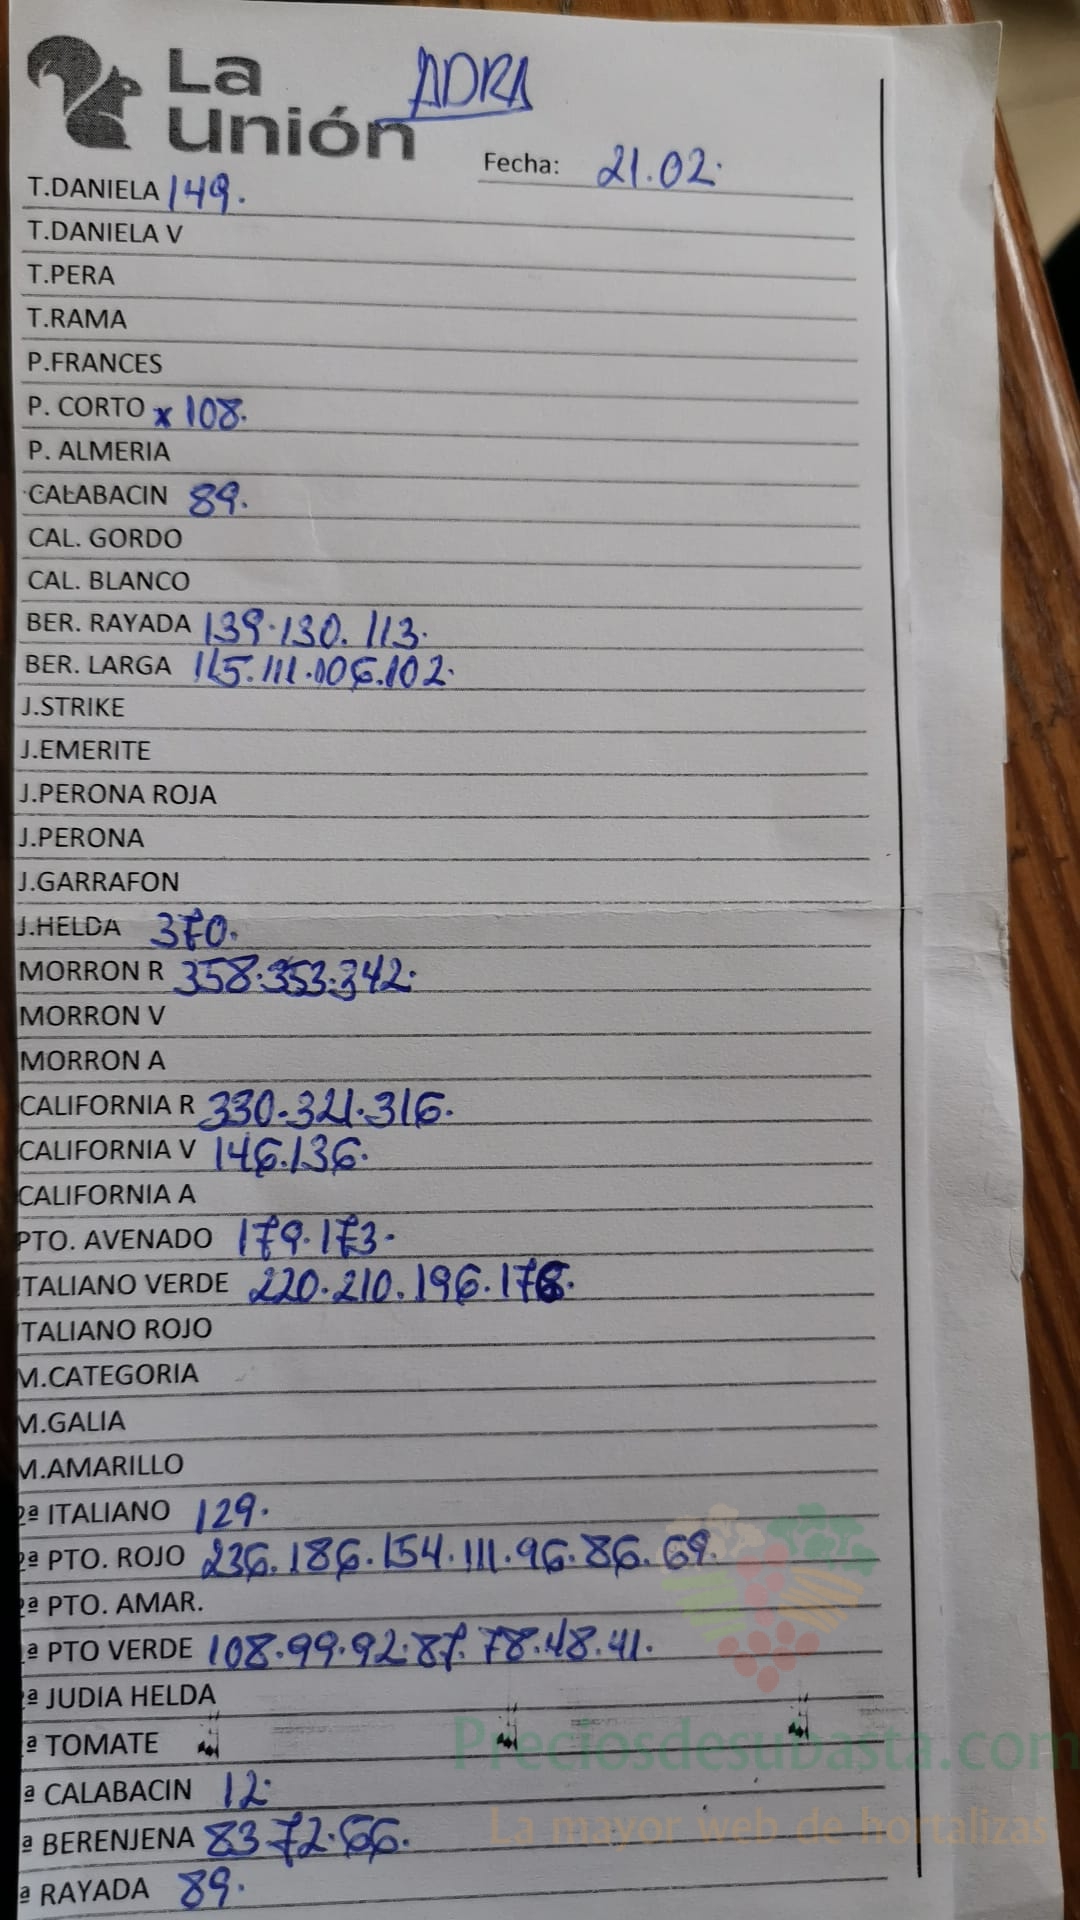 La
Unión
ADRA
Fecha: 21.02.
T.DANIELA 149.
T.DANIELA V
T.PERA
T.RAMA
P.FRANCES
P. CORTO x 108.
P. ALMERIA
CALABACIN 89.
CAL. GORDO
CAL. BLANCO
BER. RAYADA 139.130. 113.
BER. LARGA 115.111.106.102.
J.STRIKE
J.EMERITE
J.PERONA ROJA
J.PERONA
J.GARRAFON
J.HELDA 370.
MORRON R 358.353.342.
MORRON V
MORRON A
CALIFORNIA R 330.321.316.
CALIFORNIA V 146.136.
CALIFORNIA A
PTO. AVENADO 179.173.
ITALIANO VERDE 220.210.196.176.
ITALIANO ROJO
M.CATEGORIA
M.GALIA
M.AMARILLO
2ª ITALIANO 129.
2ª PTO. ROJO 236.186.154.111.96.86.69.
2ª PTO. AMAR.
ª PTO VERDE 108.99.92.87.78.48.41.
ª JUDIA HELDA
ª TOMATE
Preciosdesubasta.com
ª CALABACIN 12.
La mayor web de hortalizas
ª BERENJENA 83 72.66.
ª RAYADA 89.